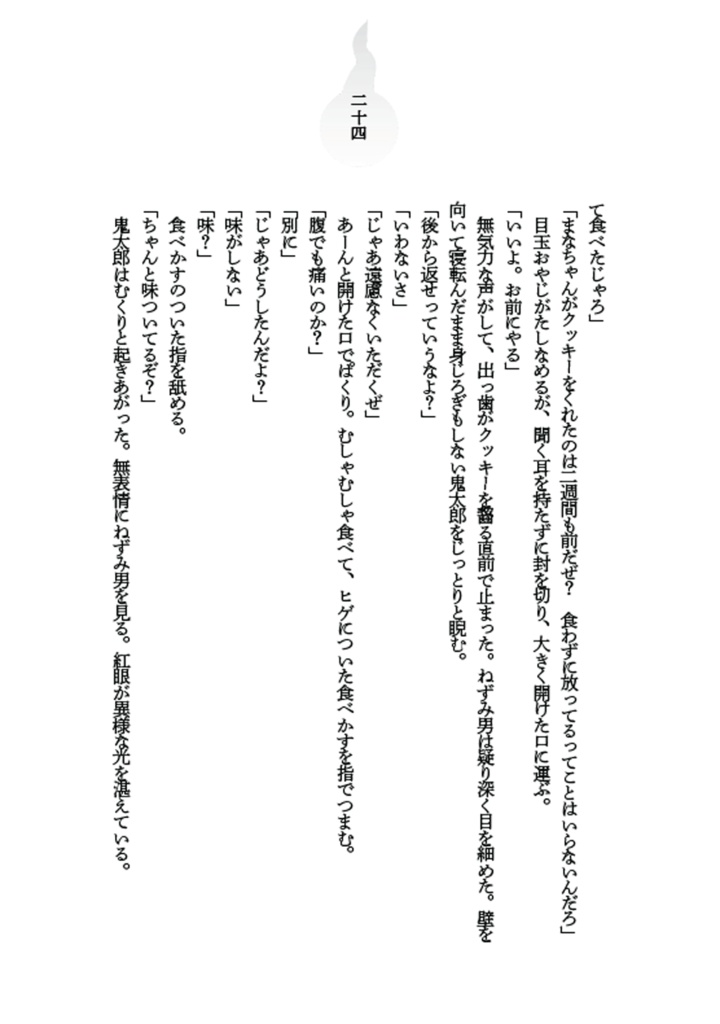 二十四
て食べたじゃろ」
「まなちゃんがクッキーをくれたのは二週間も前だぜ？　食わずに放ってるってことはいらないんだろ」
　目玉おやじがたしなめるが、聞く耳を持たずに封を切り、大きく開けた口に運ぶ。
「いいよ。お前にやる」
　無気力な声がして、出っ歯がクッキーを齧る直前で止まった。ねずみ男は疑り深く目を細めた。壁を
向いて寝転んだまま身じろぎもしない鬼太郎をじっとりと睨む。
「後から返せっていうなよ？」
「いわないさ」
「じゃあ遠慮なくいただくぜ」
　あーんと開けた口でぱくり。むしゃむしゃ食べて、ヒゲについた食べかすを指でつまむ。
「腹でも痛いのか？」
「別に」
「じゃあどうしたんだよ？」
「味がしない」
「味？」
　食べかすのついた指を舐める。
「ちゃんと味ついてるぞ？」
　鬼太郎はむくりと起きあがった。無表情にねずみ男を見る。紅眼が異様な光を湛えている。